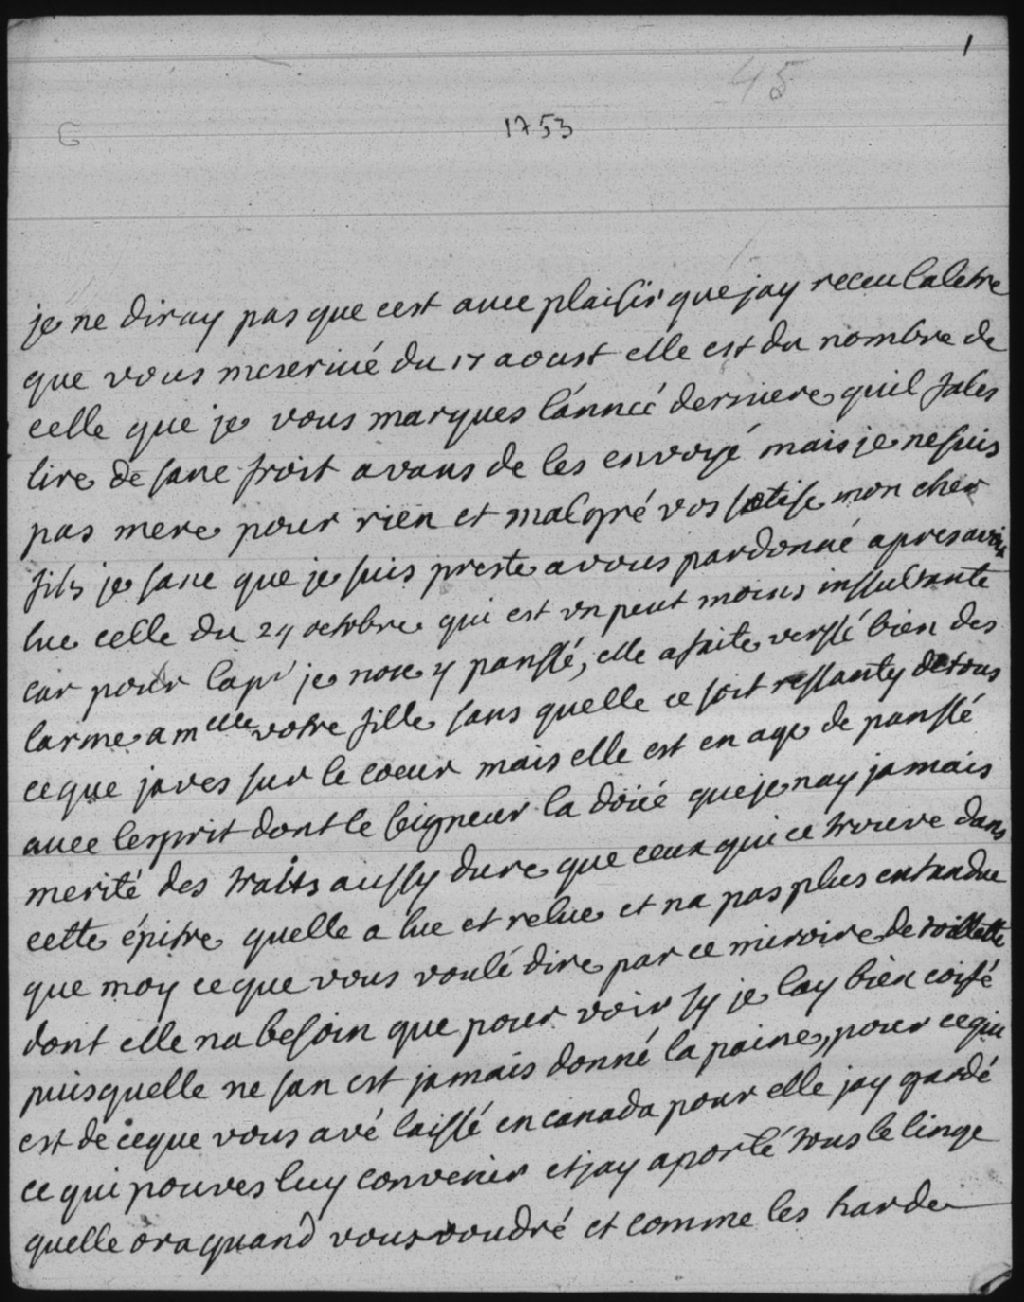 1
45
G
1753
je ne diray pas que cest avec plaisir que jay receu la letre
que vous mecrivié du 17 aoust elle est du nombre de
celle que je vous marques lánnéé derniere quil fales
lire de sanc froit avans de les envoyé mais je ne suis
pas mere pour rien et malgré vos sotise mon cher
fils je sanc que je suis preste a vous pardonné apres avoir
lue celle du 24 octobre qui est un peut moins inssultante
car pour lapr je nose y panssé, elle a faite verssé bien des
larme a mcelle votre fille sans quelle ce soit ressanty de tous
ce que javes sur le coeur mais elle est en age de panssé
avec lesprit dont le seigneur la doüé que je nay jamais
merité des traits aussy dure que ceux qui ce trouve dans
cette épitre quelle a lue et relue et na pas plus entandue
que moy ce que vous voulé dire par ce miroire de toillette
dont elle na besoin que pour voir sy je lay bien coifé
puisquelle ne san est jamais donné la paine, pour ce qui
est de ceque vous avé laissé en canada pour elle jay gardé
ce qui pouves luy convenir et jay aporté tous le linge
quelle ora quand vous voudré et comme les harde